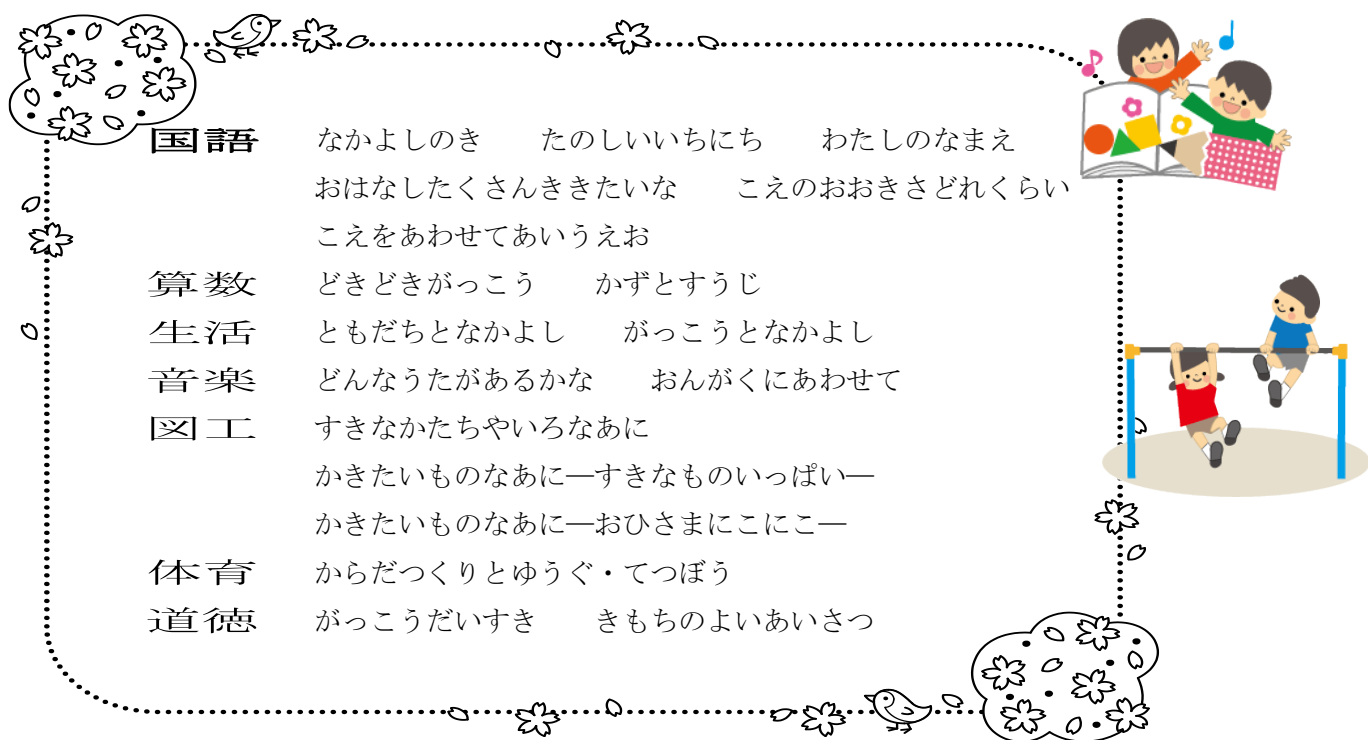 国語　なかよしのき　　たのしいいちにち　　わたしのなまえ
おはなしたくさんききたいな　　こえのおおきさどれくらい
こえをあわせてあいうえお
算数　どきどきがっこう　　かずとすうじ
生活　ともだちとなかよし　　がっこうとなかよし
音楽　どんなうたがあるかな　　おんがくにあわせて
図工　すきなかたちやいろなあに
かきたいものなあに―すきなものいっぱい―
かきたいものなあに―おひさまにこにこ―
体育　からだつくりとゆうぐ・てつぼう
道徳　がっこうだいすき　　きもちのよいあいさつ